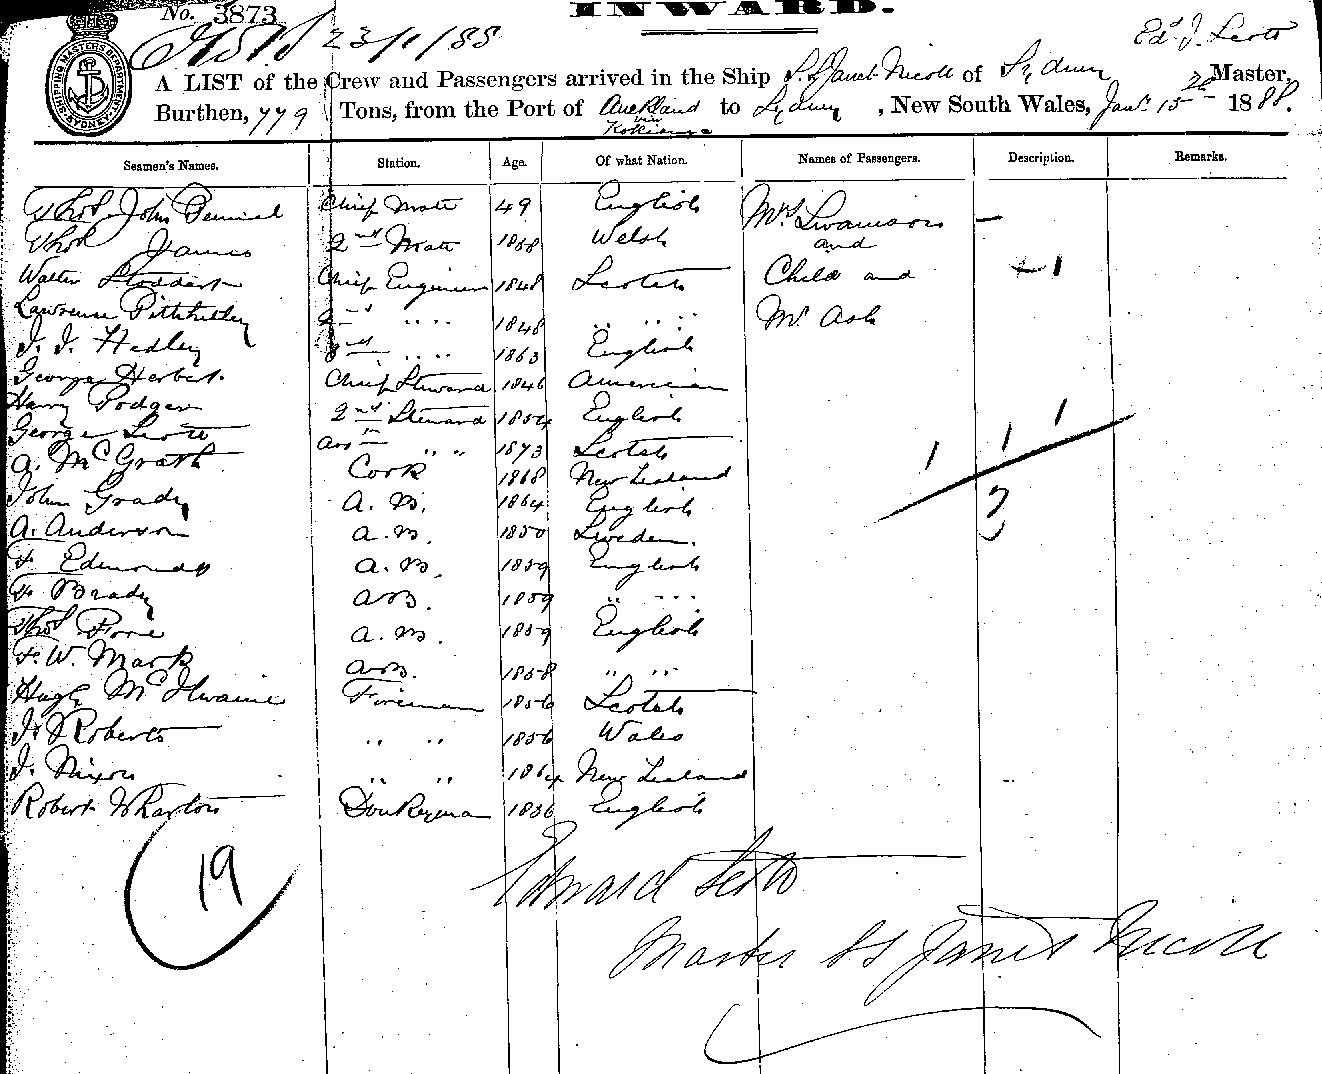 No. 3873
INWARD.
23/1/88
Ed. J. Scott
SHIPPING MASTERS DEPARTMENT SYDNEY
A LIST of the Crew and Passengers arrived in the Ship S.S Janet Nicoll of Sydney Master,
Burthen, 779 Tons, from the Port of Auckland to Sydney, New South Wales, Jany 1888.
via
Seamen's Names. Station. Age. Of what Nation. Names of Passengers. Description. Remarks.
Thos John Chief Mate 49 English Mrs Swanson –
Thos James 2nd Mate 1858 Welsh and
Walter Stoddart Chief Engineer 1848 Scotch Child and 1
Lawrence 2nd " " 1848 " " " Mr Ash
J. J. Hedley 3rd " " 1863 English
George Herbert Chief Steward 1846 American
Harry Podger 2nd Steward 1854 English
George Scott " " 1873 Scotch
A. McGrath Cook 1868 New Zealand
1 1 1
John Grady A.B. 1864 English
3
A. Anderson A.B. 1850 Sweden.
F. Edmonds A.B. 1859 English
F. Brady AB. 1859 " "
Thos A.B. 1859 English
F. W. Mark AB. 1858 " "
Hugh McIlwaine Fireman 1856 Scotch
J. Roberts " " 1856 Wales
J. Nixon " " 1864 New Zealand
Robert Wharton Donkeyman 1836 English
19
Edward Scott
Master SS Janet Nicoll